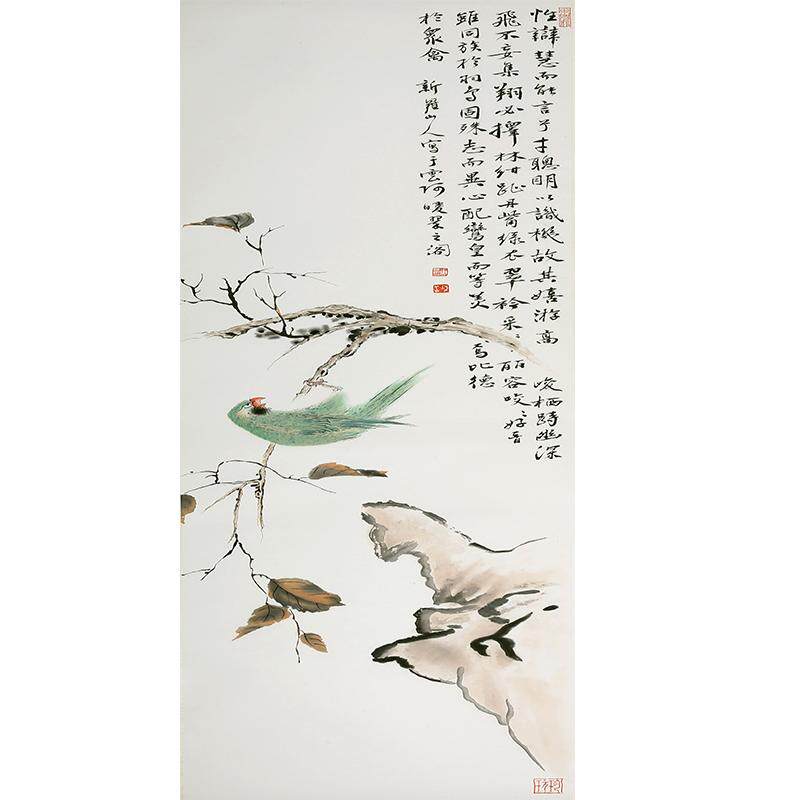 性辯慧而能言兮才聰明以識機故其嬉游高峻栖跱幽深
飛不妄集翔必擇林紺趾丹嘴綠衣翠衿采〻丽容咬〻好音
雖同族於羽毛固殊志而異心配鸞皇而等美焉比德
於眾禽 新羅山人寫于雲阿暖翠之閣